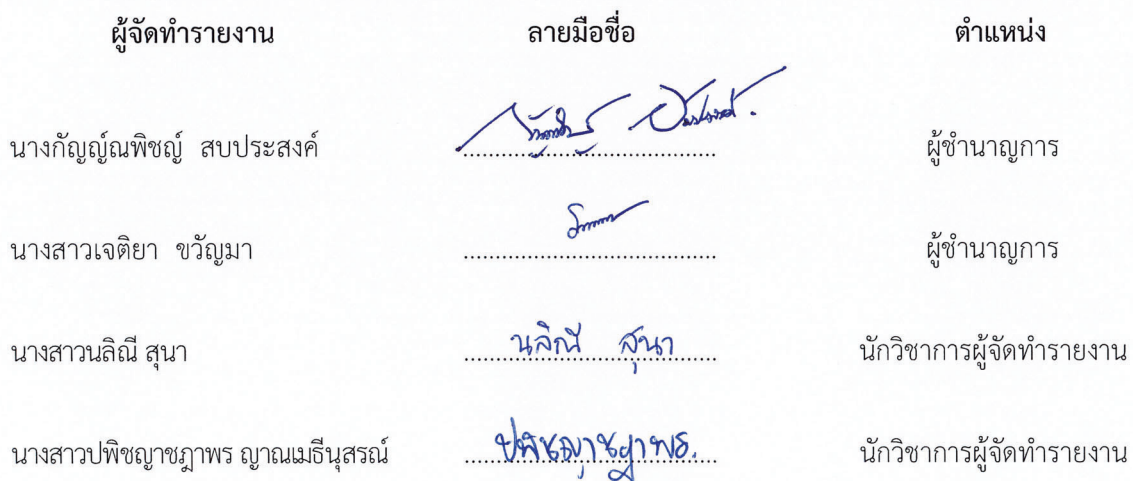 ผู้จัดทำรายงาน ลายมือชื่อ ตำแหน่ง
นางกัญญ์ณพิชญ์ สบประสงค์ ผู้ชำนาญการ
นางสาวเจติยา ขวัญมา ผู้ชำนาญการ
นางสาวนลิณี สุนา นลิณี สุนา นักวิชาการผู้จัดทำรายงาน
นางสาวปพิชญาชฎาพร ญาณเมธีนุสรณ์ ปพิชญาชฎาพร. นักวิชาการผู้จัดทำรายงาน